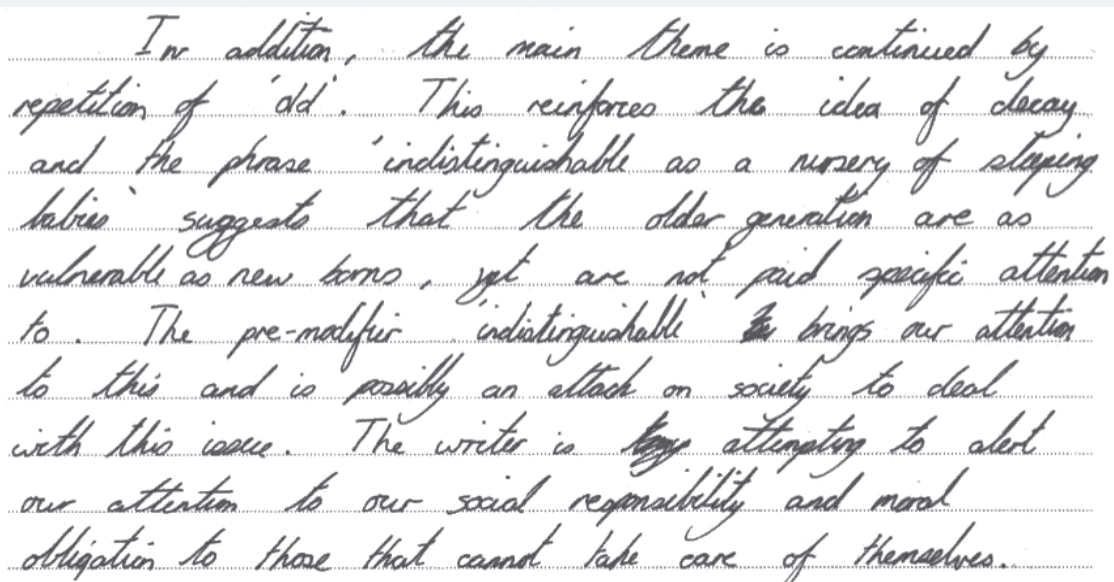 In addition, the main theme is continued by
repetition of 'old'. This reinforces the idea of decay
and the phrase 'indistinguishable as a nursery of sleeping
babies' suggests that the older generation are as
vulnerable as new borns, yet are not paid specific attention
to. The pre-modifier 'indistinguishable' brings our attention
to this and is possibly an attack on society to deal
with this issue. The writer is attempting to alert
our attention to our social responsibility and moral
obligation to those that cannot take care of themselves.